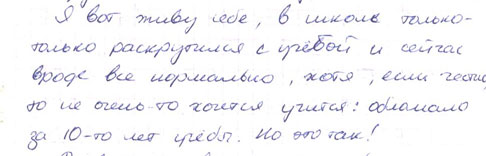 Я вот живу себе, в школе только-
только раскрутился с учёбой и сейчас
вроде все нормально, хотя, если честно,
то не очень-то хочется учится: обломало
за 10-то лет учёбы. Но это так!